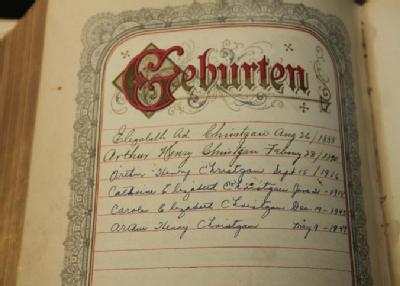 Geburten
Elizabeth Ad. Christgau Aug 26/1888
Arthur Henry Christgau Febuary 28/1890
Arthur Henry Christgau Sept 15/1916
Catherine Elizabeth Christgau June 21-1919
Carole Elizabeth Christgau Dec. 19-1945
Arthur Henry Christgau May 9-1949